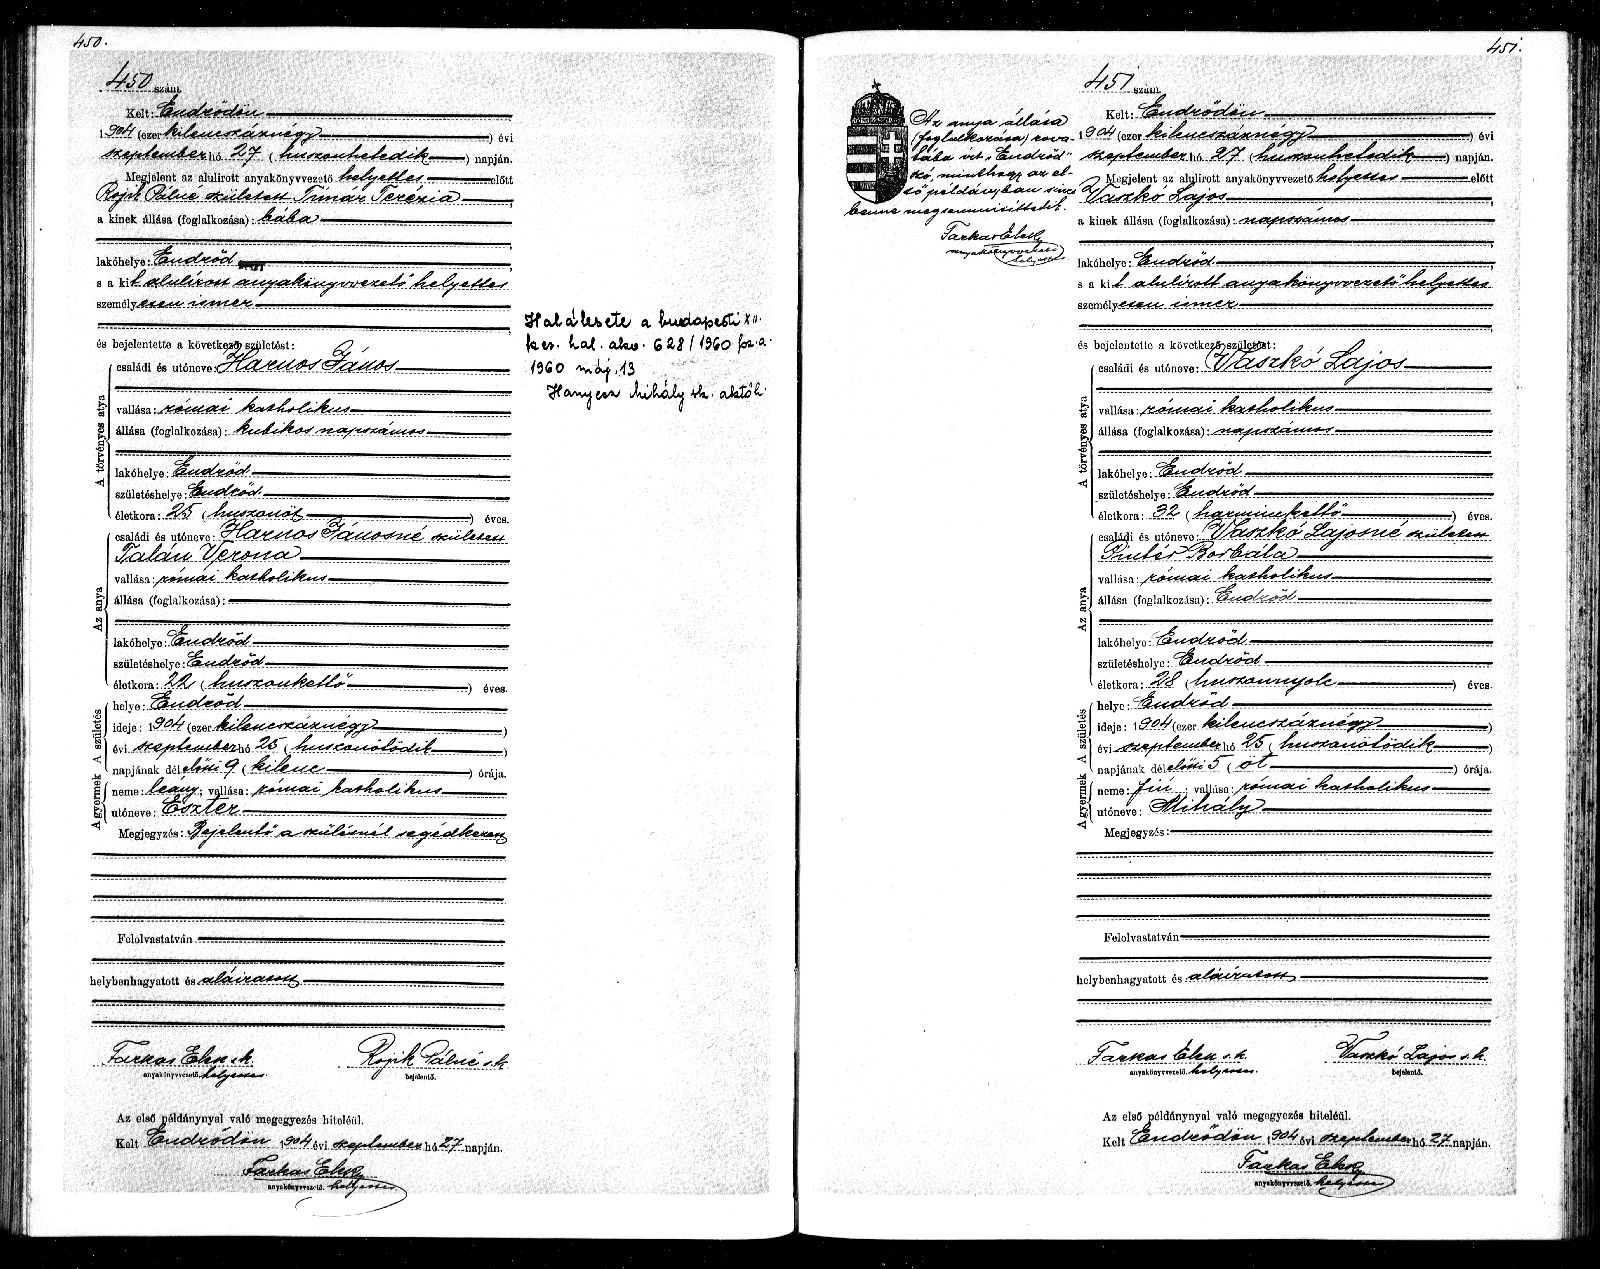 450.
450 szám.
Kelt: Endrődön
1904 (ezer kilencszáznégy) évi
szeptember hó 27 (huszonhetedik) napján.
Megjelent az alulirott anyakönyvvezető helyettes előtt
Rojik Pálné született Tímár Terézia
a kinek állása (foglalkozása): bába
lakóhelye: Endrőd
s a kit alulirott anyakönyvvezető helyettes
személyesen ismer
és bejelentette a következő születést:
A törvényes atya
családi és utóneve: Harnos János
vallása: római katholikus
állása (foglalkozása): kubikos napszámos
lakóhelye: Endrőd
születéshelye: Endrőd
életkora: 25 (huszonöt) éves.
Az anya
családi és utóneve: Harnos Jánosné született
Talán Verona
vallása: római katholikus
állása (foglalkozása):
lakóhelye: Endrőd
születéshelye: Endrőd
életkora: 22 (huszonkettő) éves.
A születés
helye: Endrőd
ideje: 1904 (ezer kilencszáznégy)
évi szeptember hó 25 (huszonötödik)
napjának délelőtti 9 (kilenc) órája.
A gyermek
neme: leány; vallása: római katholikus
utóneve: Eszter
Megjegyzés: Bejelentő a szülésnél segédkezett
Felolvastatván
helybenhagyatott és aláíratott
Farkas Elek s.k. Rojik Pálné s.k.
anyakönyvvezető. helyettes. bejelentő.
Az első példánynyal való megegyezés hiteléül.
Kelt Endrődön 1904 évi szeptember hó 27 napján.
Farkas Elek
anyakönyvvezető. helyettes
Halálesete a budapesti XII.
ker. hal. akv. 628/1960 fsz. a.
1960 máj. 13
Hanyecz Mihály sk. aktóh.
451.
Az anya állása
(foglalkozása) rova-
tába írt "Endrőd"
szó, minthogy az el-
ső példányban sincs
benne megsemmisíttetik.
Farkas Elek
anyakönyvvezető
helyettes
451 szám.
Kelt: Endrődön
1904 (ezer kilencszáznégy) évi
szeptember hó 27 (huszonhetedik) napján.
Megjelent az alulirott anyakönyvvezető helyettes előtt
Vaszkó Lajos
a kinek állása (foglalkozása): napszámos
lakóhelye: Endrőd
s a kit alulírott anyakönyvvezető helyettes
személyesen ismer
és bejelentette a következő születést:
A törvényes atya
családi és utóneve: Vaszkó Lajos
vallása: római katholikus
állása (foglalkozása): napszámos
lakóhelye: Endrőd
születéshelye: Endrőd
életkora: 32 (harminckettő) éves.
Az anya
családi és utóneve: Vaszkó Lajosné született
Pintér Borbála
vallása: római katholikus
állása (foglalkozása): Endrőd
lakóhelye: Endrőd
születéshelye: Endrőd
életkora: 28 (huszonnyolc) éves.
A születés
helye: Endrőd
ideje: 1904 (ezer kilencszáznégy)
évi szeptember hó 25 (huszonötödik)
napjának délelőtti 5 (öt) órája.
A gyermek
neme: fiú; vallása: római katholikus
utóneve: Mihály
Megjegyzés:
Felolvastatván
helybenhagyatott és aláíratott
Farkas Elek s.k. Vaszkó Lajos s.k.
anyakönyvvezető. helyettes. bejelentő.
Az első példánynyal való megegyezés hiteléül.
Kelt Endrődön 1904 évi szeptember hó 27 napján.
Farkas Elek
anyakönyvvezető. helyettes